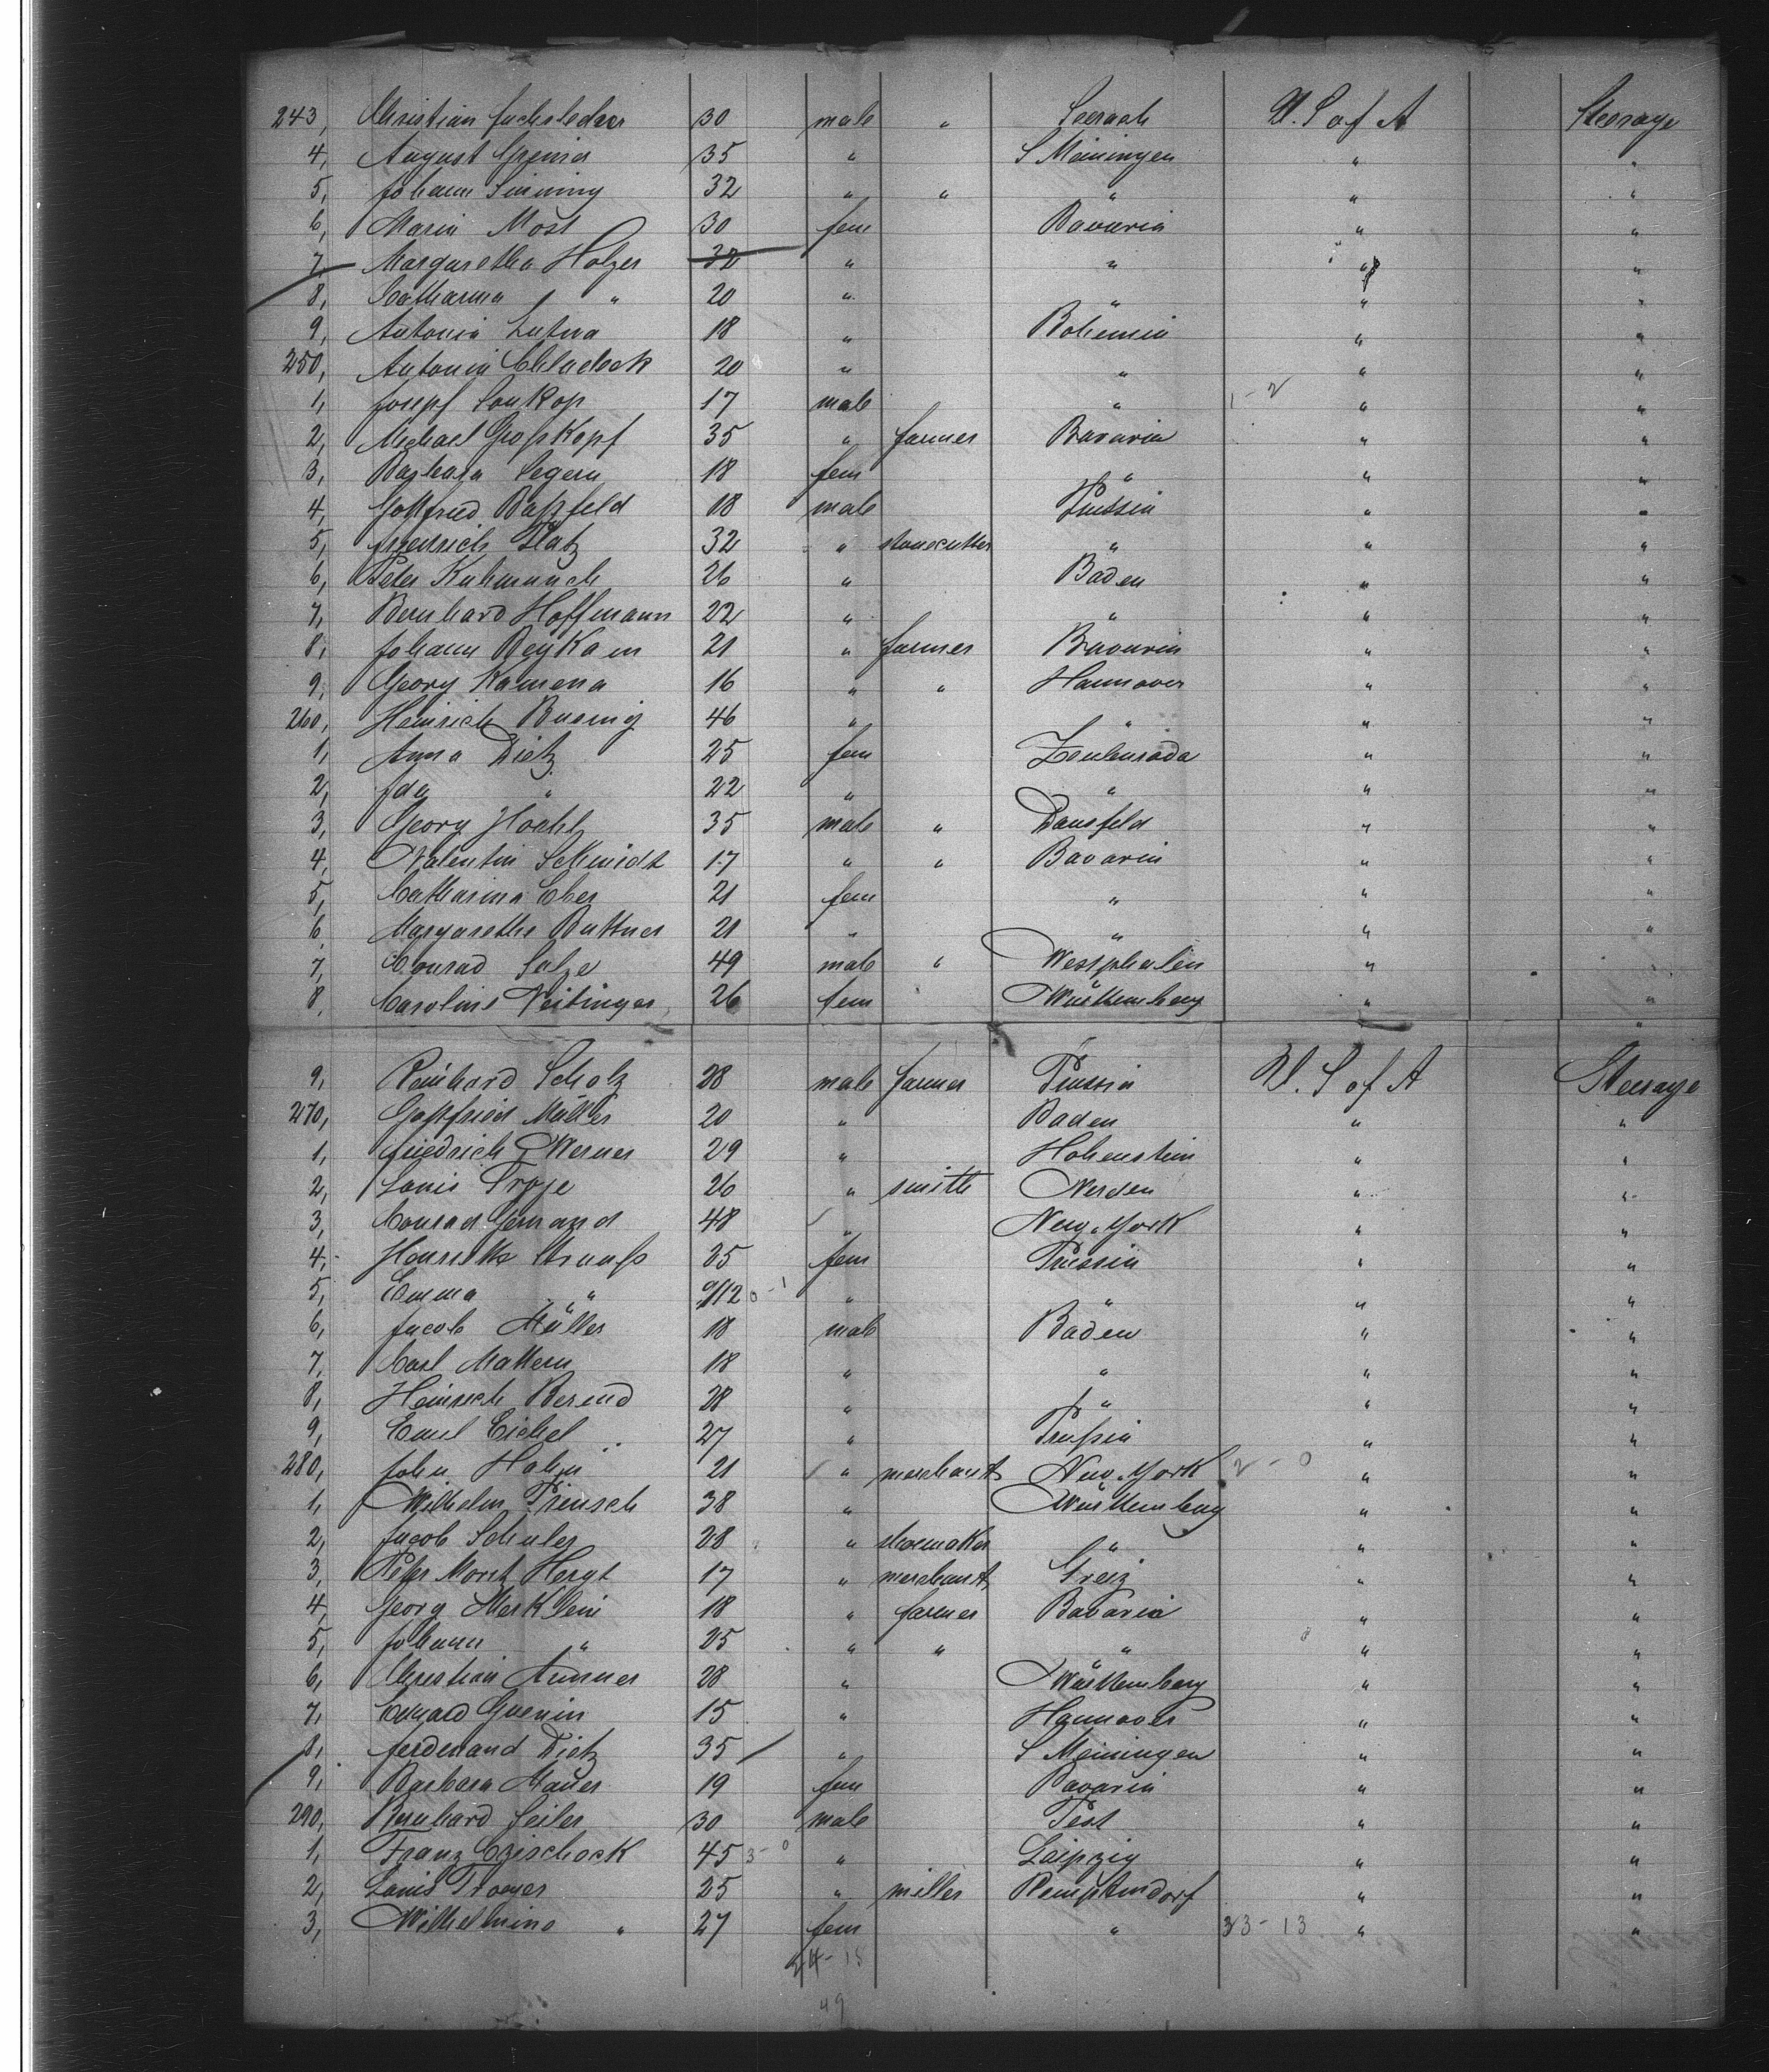 243, Christian 30 male " U. S of A Steerage
4, August 35 " S Meiningen " "
5, Johann Sinning 32 " " " " "
6, Maria Most 30 fem Bavaria " "
7, Margaretha Holzer 32 " " " "
8, Catharina " 20 " " " "
9, Antonia 18 " Bohemia " "
250, Antonia 20 " " " "
1, Josepf Soukop 17 male " 1-2 " "
2, Michael Großkopf 35 " farmer Bavaria " "
3, Barbara Segern 18 fem " " "
4, Gottfried 18 male Prussia " "
5, Friedrich Platz 32 " stonecutter " " "
6, Peter 26 " Baden " "
7, Bernhard Hoffmann 22 " " " "
8, Johann Beykam 21 " farmer Bavaria " "
9, Georg Kamena 16 " " Hannover " "
260, Heinrich Buemig 46 " " " "
1, Anna Dietz 25 fem Zeulenroda " "
2, Ida " 22 " " " "
3, Georg 35 male " Dansfeld " "
4, Valentin Schmidt 17 " " Bavaria " "
5, Catharina Eber 21 fem " " "
6, Margarethe Buttner 21 " " " "
7, Conrad Salze 49 male " Westphalen " "
8, Caroline Neitinger 26 fem Württemberg " "
"
9, Reinhard Scholz 28 male farmer Prussia U. S of A Steerage
270, Gottfried Müller 20 " Baden " "
1, Friedrich Werner 29 " Hohenstein " "
2, Louis Troje 26 " smith Verden " "
3, Conrad Gernand 48 " New-York " "
4, Henriette Strauß 25 fem Prussia " "
5, Emma " 9/12 0-1 " " " "
6, Jacob Müller 18 male Baden " "
7, Carl Mattern 18 " " " "
8, Heinrich Berend 28 " " " "
9, Emil Eichel 27 " Prußia " "
280, John Hahn 21 " merchant New-York 2-0 " "
1, Wilhelm 38 " Württemberg " "
2, Jacob Schuler 28 " shoemaker " " "
3, Peter Moritz Hergt 17 " merchant Greiz " "
4, Georg Merklein 18 " farmer Bavaria " "
5, Johann " 25 " " " " "
6, Christian 28 " Württemberg " "
7, Guenin 15 " Hannover " "
8, Ferdinand Dietz 35 " S Meiningen " "
9, Barbara Mauer 19 fem Bavaria " "
290, Bernhard Seiler 30 male Pest " "
1, Franz Czischock 45 3-0 " Leipzig " "
2, Louis Troeger 25 " miller Remptendorf " "
3, Wilhelmine " 27 fem " 33-13 " "
49